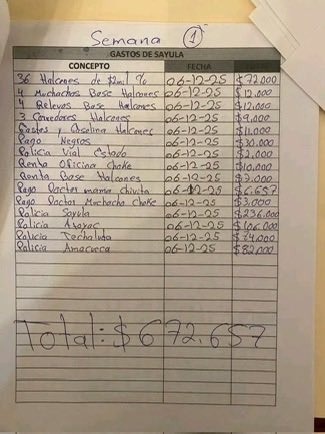 Semana 1
GASTOS DE SAYULA
CONCEPTO FECHA
36 Halcones de $2mil % 06-12-25 $72.000
4 Muchachos Base Halcones 06-12-25 $12.000
4 Relevos Base Halcones 06-12-25 $12.000
3 Comedores Halcones 06-12-25 $9.000
Gastos y Gasolina Halcones 06-12-25 $11.000
Pago Negros 06-12-25 $30.000
Policia Vial Estado 06-12-25 $2.000
Renta Oficina Choke 06-12-25 $10.000
Renta Base Halcones 06-12-25 $7.000
Pago Doctor mama chivita 06-12-25 $6.657
Pago Doctor Muchacho Choke 06-12-25 $3.000
Policia Sayula 06-12-25 $236.000
Policia Atoyac 06-12-25 $106.000
Policia Techaluta 06-12-25 $74.000
Policia Amacueca 06-12-25 $82.000
Total: $672.657